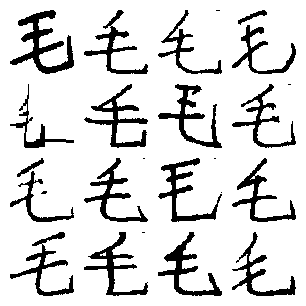 毛毛毛毛
毛毛毛毛
毛毛毛毛
毛毛毛毛